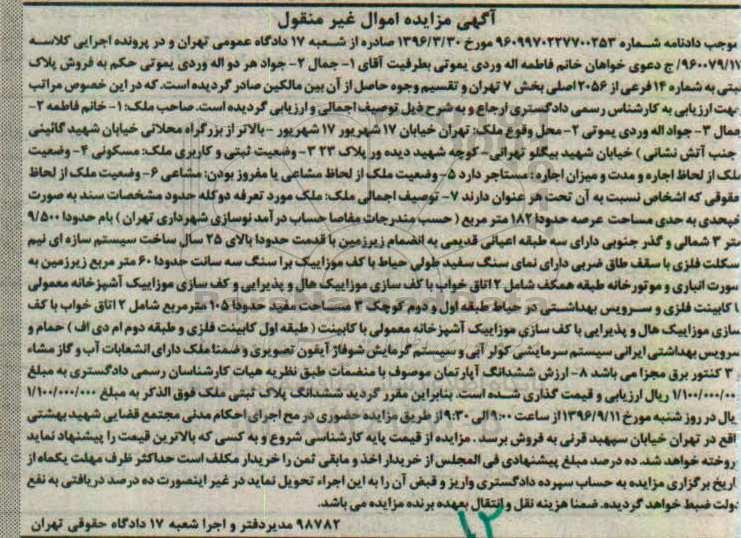 آگهی مزایده اموال غیر منقول
موجب دادنامه شماره ۹۶۰۹۹۷۰۲۲۷۷۰۰۲۵۳ مورخ ۱۳۹۶/۳/۳۰ صادره از شعبه ۱۷ دادگاه عمومی تهران و در پرونده اجرایی کلاسه
۹۶۰۰۷۹/۱۷/ ج دعوی خواهان خانم فاطمه اله وردی یموتی بطرفیت آقای ۱- جمال ۲- جواد هر دو اله وردی یموتی حکم به فروش پلاک
ثبتی به شماره ۱۴ فرعی از ۲۰۵۶ اصلی بخش ۷ تهران و تقسیم وجوه حاصل از آن بین مالکین صادر گردیده است. که در این خصوص مراتب
جهت ارزیابی به کارشناس رسمی دادگستری ارجاع و به شرح ذیل توصیف اجمالی و ارزیابی گردیده است. صاحب ملک: ۱- خانم فاطمه ۲-
جمال ۳- جواد اله وردی یموتی ۲- محل وقوع ملک: تهران خیابان ۱۷ شهریور ۱۷ شهریور -بالاتر از بزرگراه محلاتی خیابان شهید گائینی
جنب آتش نشانی ) خیابان شهید بیگلو تهرانی- کوچه شهید دیده ور پلاک ۲۳ ۳- وضعیت ثبتی و کاربری ملک: مسکونی ۴- وضعیت
ملک از لحاظ اجاره و مدت و میزان اجاره : مستاجر دارد ۵- وضعیت ملک از لحاظ مشاعی یا مفروز بودن: مشاعی ۶- وضعیت ملک از لحاظ
حقوقی که اشخاص نسبت به آن تحت هر عنوان دارند ۷- توصیف اجمالی ملک: ملک مورد تعرفه دوکله حدود مشخصات سند به صورت
غیحدی به حدی مساحت عرصه حدودا ۱۸۲ متر مربع ( حسب مندرجات مفاصا حساب درآمد نوسازی شهرداری تهران ) بام حدودا ۹/۵۰۰
متر ۳ شمالی و گذر جنوبی دارای سه طبقه اعیانی قدیمی به انضمام زیرزمین با قدمت حدودا بالای ۲۵ سال ساخت سیستم سازه ای نیم
سکلت فلزی با سقف طاق ضربی دارای نمای سنگ سفید طولی حیاط با کف موزاییک برا سنگ سه سانت حدودا ۶۰ متر مربع زیرزمین به
صورت انباری و موتورخانه طبقه همکف شامل ۲ اتاق خواب با کف سازی موزاییک هال و پذیرایی و کف سازی موزاییک آشپزخانه معمولی
با کابینت فلزی و سرویس بهداشتی در حیاط طبقه اول و دوم کوچک ۳ مساحت مفید حدودا ۱۰۵ مترمربع شامل ۲ اتاق خواب با کف
سازی موزاییک هال و پذیرایی با کف سازی موزاییک آشپزخانه معمولی با کابینت ( طبقه اول کابینت فلزی و طبقه دوم ام دی اف ) حمام و
سرویس بهداشتی ایرانی سیستم سرمایشی کولر آبی و سیستم گرمایش شوفاژ آیفون تصویری و ضمنا ملک دارای انشعابات آب و گاز مشاء
۳ کنتور برق مجزا می باشد ۸- ارزش ششدانگ آپارتمان موصوف با منضمات طبق نظریه هیات کارشناسان رسمی دادگستری به مبلغ
۱/۱۰۰/۰۰۰/۰۰ ریال ارزیابی و قیمت گذاری شده است. بنابراین مقرر گردید ششدانگ پلاک ثبتی ملک فوق الذکر به مبلغ ۱/۱۰۰/۰۰۰/۰۰۰
یال در روز شنبه مورخ ۱۳۹۶/۹/۱۱ از ساعت ۹:۰۰ الی ۹:۳۰ از طریق مزایده حضوری در مح اجرای احکام مدنی مجتمع قضایی شهید بهشتی
اقع در تهران خیابان سپهبد قرنی به فروش برسد . مزایده از قیمت پایه کارشناسی شروع و به کسی که بالاترین قیمت را پیشنهاد نماید
روخته خواهد شد. ده درصد مبلغ پیشنهادی فی المجلس از خریدار اخذ و مابقی ثمن را خریدار مکلف است حداکثر ظرف مهلت یکماه از
اریخ برگزاری مزایده به حساب سپرده دادگستری واریز و قبض آن را به این اجراء تحویل نماید در غیر اینصورت ده درصد دریافتی به نفع
دولت ضبط خواهد گردیده. ضمنا هزینه نقل و انتقال بعهده برنده مزایده می باشد.
۹۸۷۸۲ مدیر دفتر و اجرا شعبه ۱۷ دادگاه حقوقی تهران
۱۳